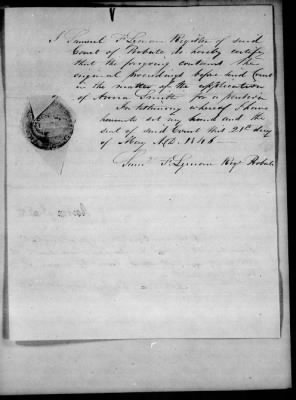 I Samuel F. Lyman Register of said
Court of Probate do hereby certify
that the foregoing contains the
original proceedings before said Court
in the matter of the application
of Anna Smith for a pension
In testimony whereof I have
hereunto set my hand and the
seal of said Court this 21st day
of May A.D. 1846
Saml. F. Lyman Regr Probate